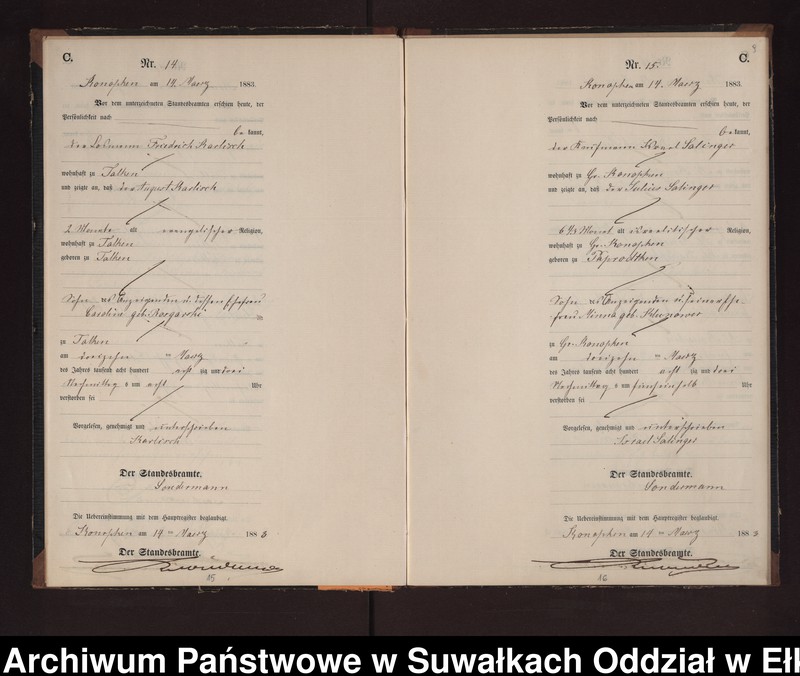 C.
Nr. 14
Konopken am 14. Maerz 1883.
Vor dem unterzeichneten Standesbeamten erschien heute, der
Persönlichkeit nach
be kannt,
der Losmann Friedrich
wohnhaft zu Talken
und zeigte an, daß der August
2 Monate alt evangelischer Religion,
wohnhaft zu Talken
geboren zu Talken
Sohn des Anzeigenden u dessen Ehefrau
Caroline geb.
zu Talken
am dreizehn ten Maerz
des Jahres tausend acht hundert acht zig und drei
Nachmittag s um acht Uhr
verstorben sei
Vorgelesen, genehmigt und unterschrieben
Der Standesbeamte.
Sondermann
Die Uebereinstimmung mit dem Hauptregister beglaubigt.
Konopken am 14 ten Maerz 188 3
Der Standesbeamte.
15
C.
Nr. 15
Konopken am 14. Maerz 1883.
Vor dem unterzeichneten Standesbeamten erschien heute, der
Persönlichkeit nach
be kannt,
der Kaufmann Israel Salinger
wohnhaft zu Gr. Konopken
und zeigte an, daß der Julius Salinger
6 1/2 Monat alt israelitischer Religion,
wohnhaft zu Gr. Konopken
geboren zu
Sohn des Anzeigenden u seiner Ehe-
frau Minna geb.
zu Gr. Konopken
am dreizehn ten Maerz
des Jahres tausend acht hundert acht zig und drei
Nachmittag s um fünfeinhalb Uhr
verstorben sei
Vorgelesen, genehmigt und unterschrieben
Israel Salinger
Der Standesbeamte.
Sondermann
Die Uebereinstimmung mit dem Hauptregister beglaubigt.
Konopken am 14 ten Maerz 188 3
Der Standesbeamte.
16
Archiwum Państwowe w Suwałkach Oddział w Ełk